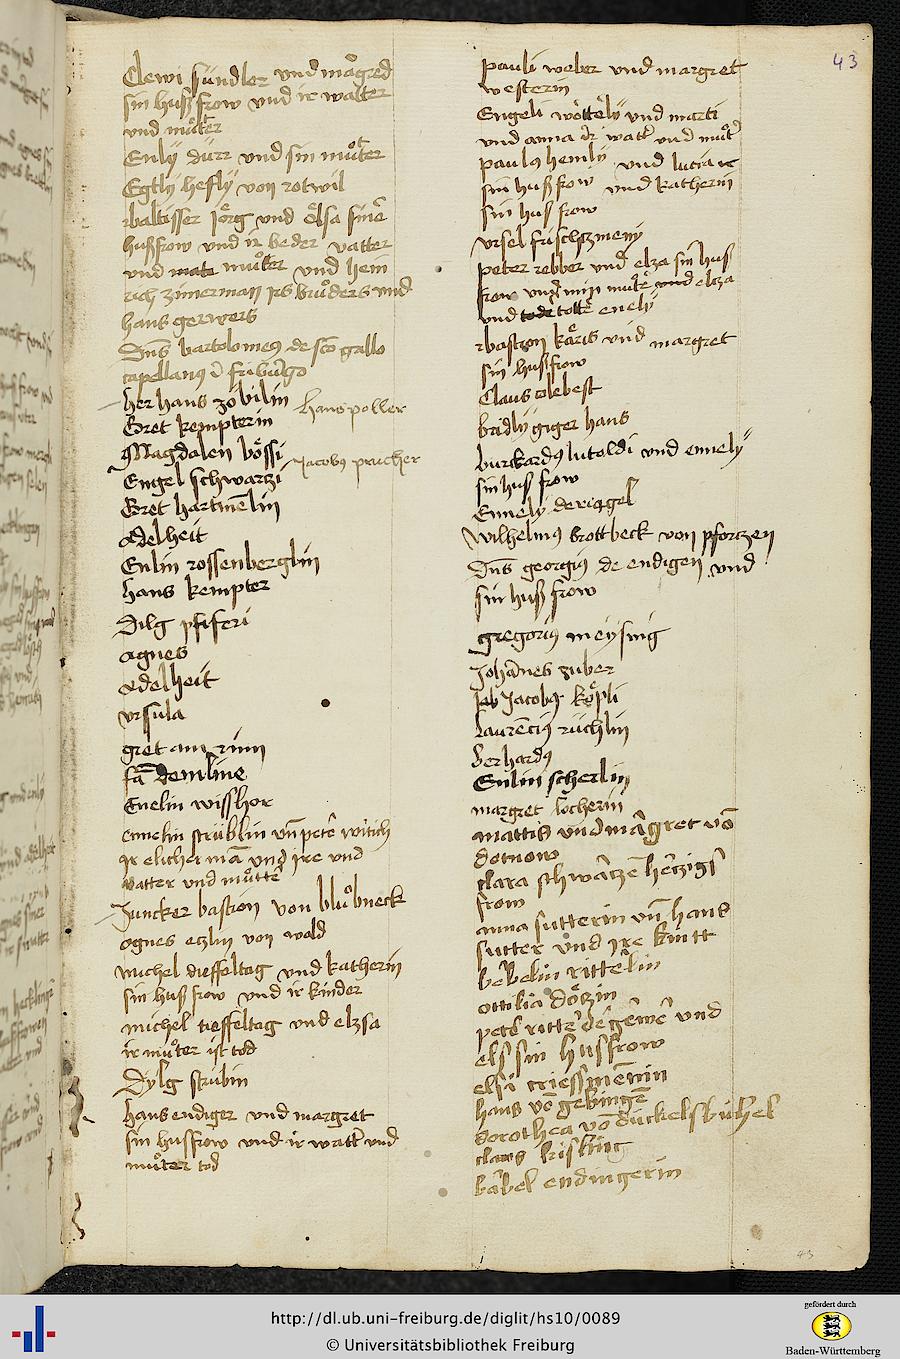 43
Clewi sündler und margred
sin hußfrow und ir watter
und muͦter
Enly dürr und sin muͦter
Egtly hefly von rotwil
baltisser Joͤrg und Elsa sine
hußfrow und ir beder vatter
und muͦtter und hein
rich zimerman irs bruͦders und
hans gerwers
Dn̄s bartolomeꝰ de sco gallo
capellanꝰ i friburgo
her hans zobilin hans poller
Gret kempterin
Magdalen boͤssi
Engel schwarzi Jacobꝰ
Gret hartmēlin
Adelheit
Enlin rossenberglin
hans kempter
Dilg pfiferi
agnes
Adelheit
vrsula
gret am
Enelin wisshor
Ennelin strüblin vn̄ petē witich
ir elicher mā und ire und
vatter und muͦttē
Juncker bastion von bluͦbneck
agnes etzlin von wald
michel dieffeltag und katherin
sin hussfrow und ir kinder
michel tieffeltag und elzsa
ir muͦter ist tod
Dylg strübin
hans endiger und margret
sin hussfrow und ir watter und
muͦter tod
pauli weber und margret
westerin
Engeli und marti
und anna ir watter und muͦter
paulꝰ hemly und lucia ir
sin hußfrow und katherin
sin huß frow
vrsel
peter rebber und elza sin huß
frow und min mutē und elza
und enely
bastion und margret
sin hußfrow
Claus
bridly giger hans
burkardꝰ lutoldi und ennely
sin huß frow
Ennely
Wilhelmꝰ brottbeck von pforczen
Dn̄s georgiꝰ de endigen und
sin huß frow
gregoriꝰ meysing
Johānes zuber
Jacobꝰ
laurēciꝰ rüchlin
berhardꝰ
Enlin scherlin
margret locherin
mattis und margret vō
clara schwarzē
frow
anna sutterin vn̄ hans
sutter und ire kintt
bebelin rittelin
ottilia doͤszin
els sin husfrow
elsi
hans vō gebingē
dorothea vō dückelsbühel
claus
babel endingerin
43
http://dl.ub.uni-freiburg.de/diglit/hs10/0089
© Universitätsbibliothek Freiburg
gefördert durch
Baden-Württemberg